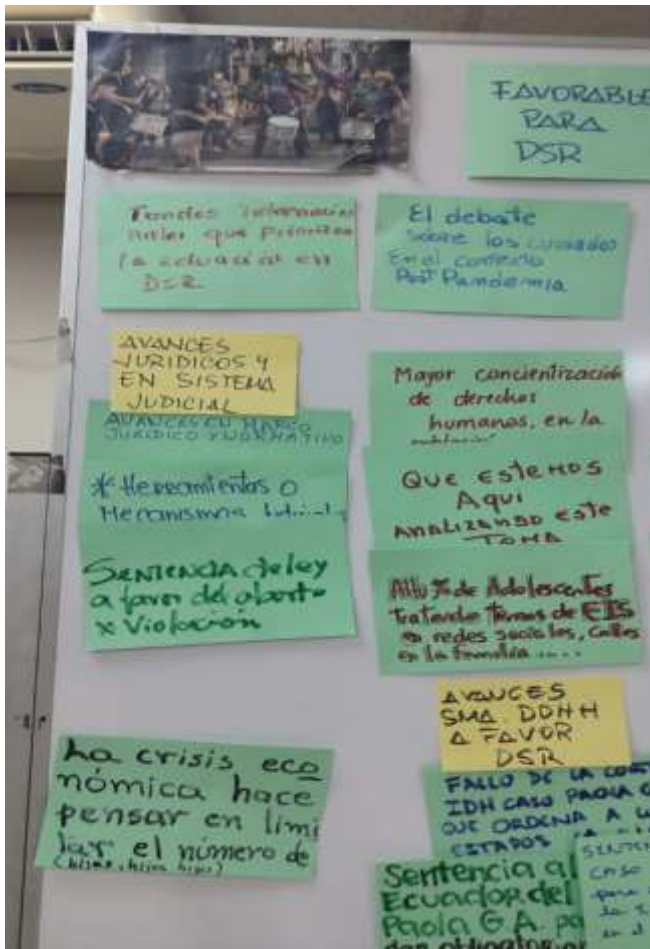 FAVORABLE
PARA
DSR
Fondos internacio
nales que promueven
la educación en
DSR
El debate
sobre los cuidados
En el contexto
Post Pandemia
AVANCES
JURIDICOS Y
EN SISTEMA
JUDICIAL
AVANCES EN MARCO
JURIDICO Y NORMATIVO
* Herramientas o
Mecanismos
SENTENCIA de ley
a favor del aborto
x Violación
Mayor concientización
de derechos
humanos, en la
QUE ESTEMOS
AQUI
ANALIZANDO ESTE
TEMA
Alto % de Adolescentes
tratando temas de EIS
en redes sociales, calles
en la familia ....
La crisis eco
nómica hace
pensar en limi
tar el número de
AVANCES
SMA DDHH
A FAVOR
DSR
FALLO DE LA CORT
IDH CASO PAOLA G
QUE ORDENA A
ESTADOS
Sentencia al
Ecuador del
Paola G A.